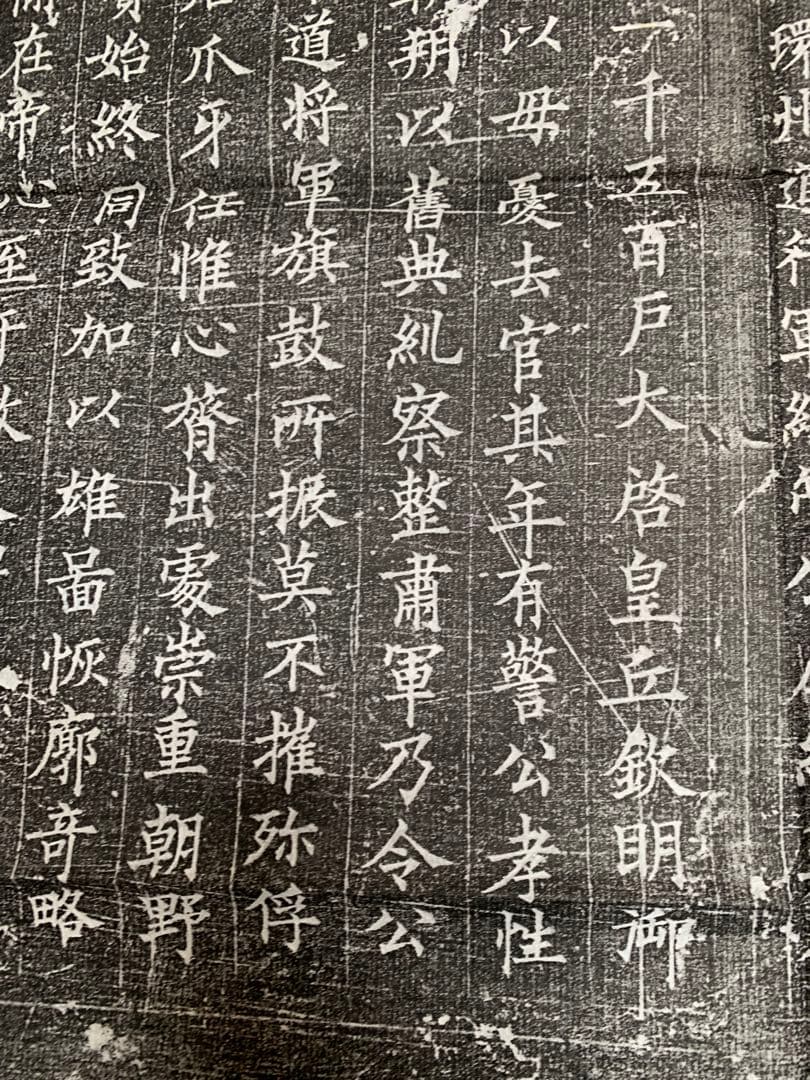 環州道行軍總管
一千五百户大啓皇丘欽明御
以毋憂去官其年有警公孝性
朔以舊典糺察整肅軍乃令公
道将軍旗鼓所振莫不摧殄俘
爪牙任惟心膂出處崇重朝野
始終同致加以雄啚恢廓奇略
在帝心至於